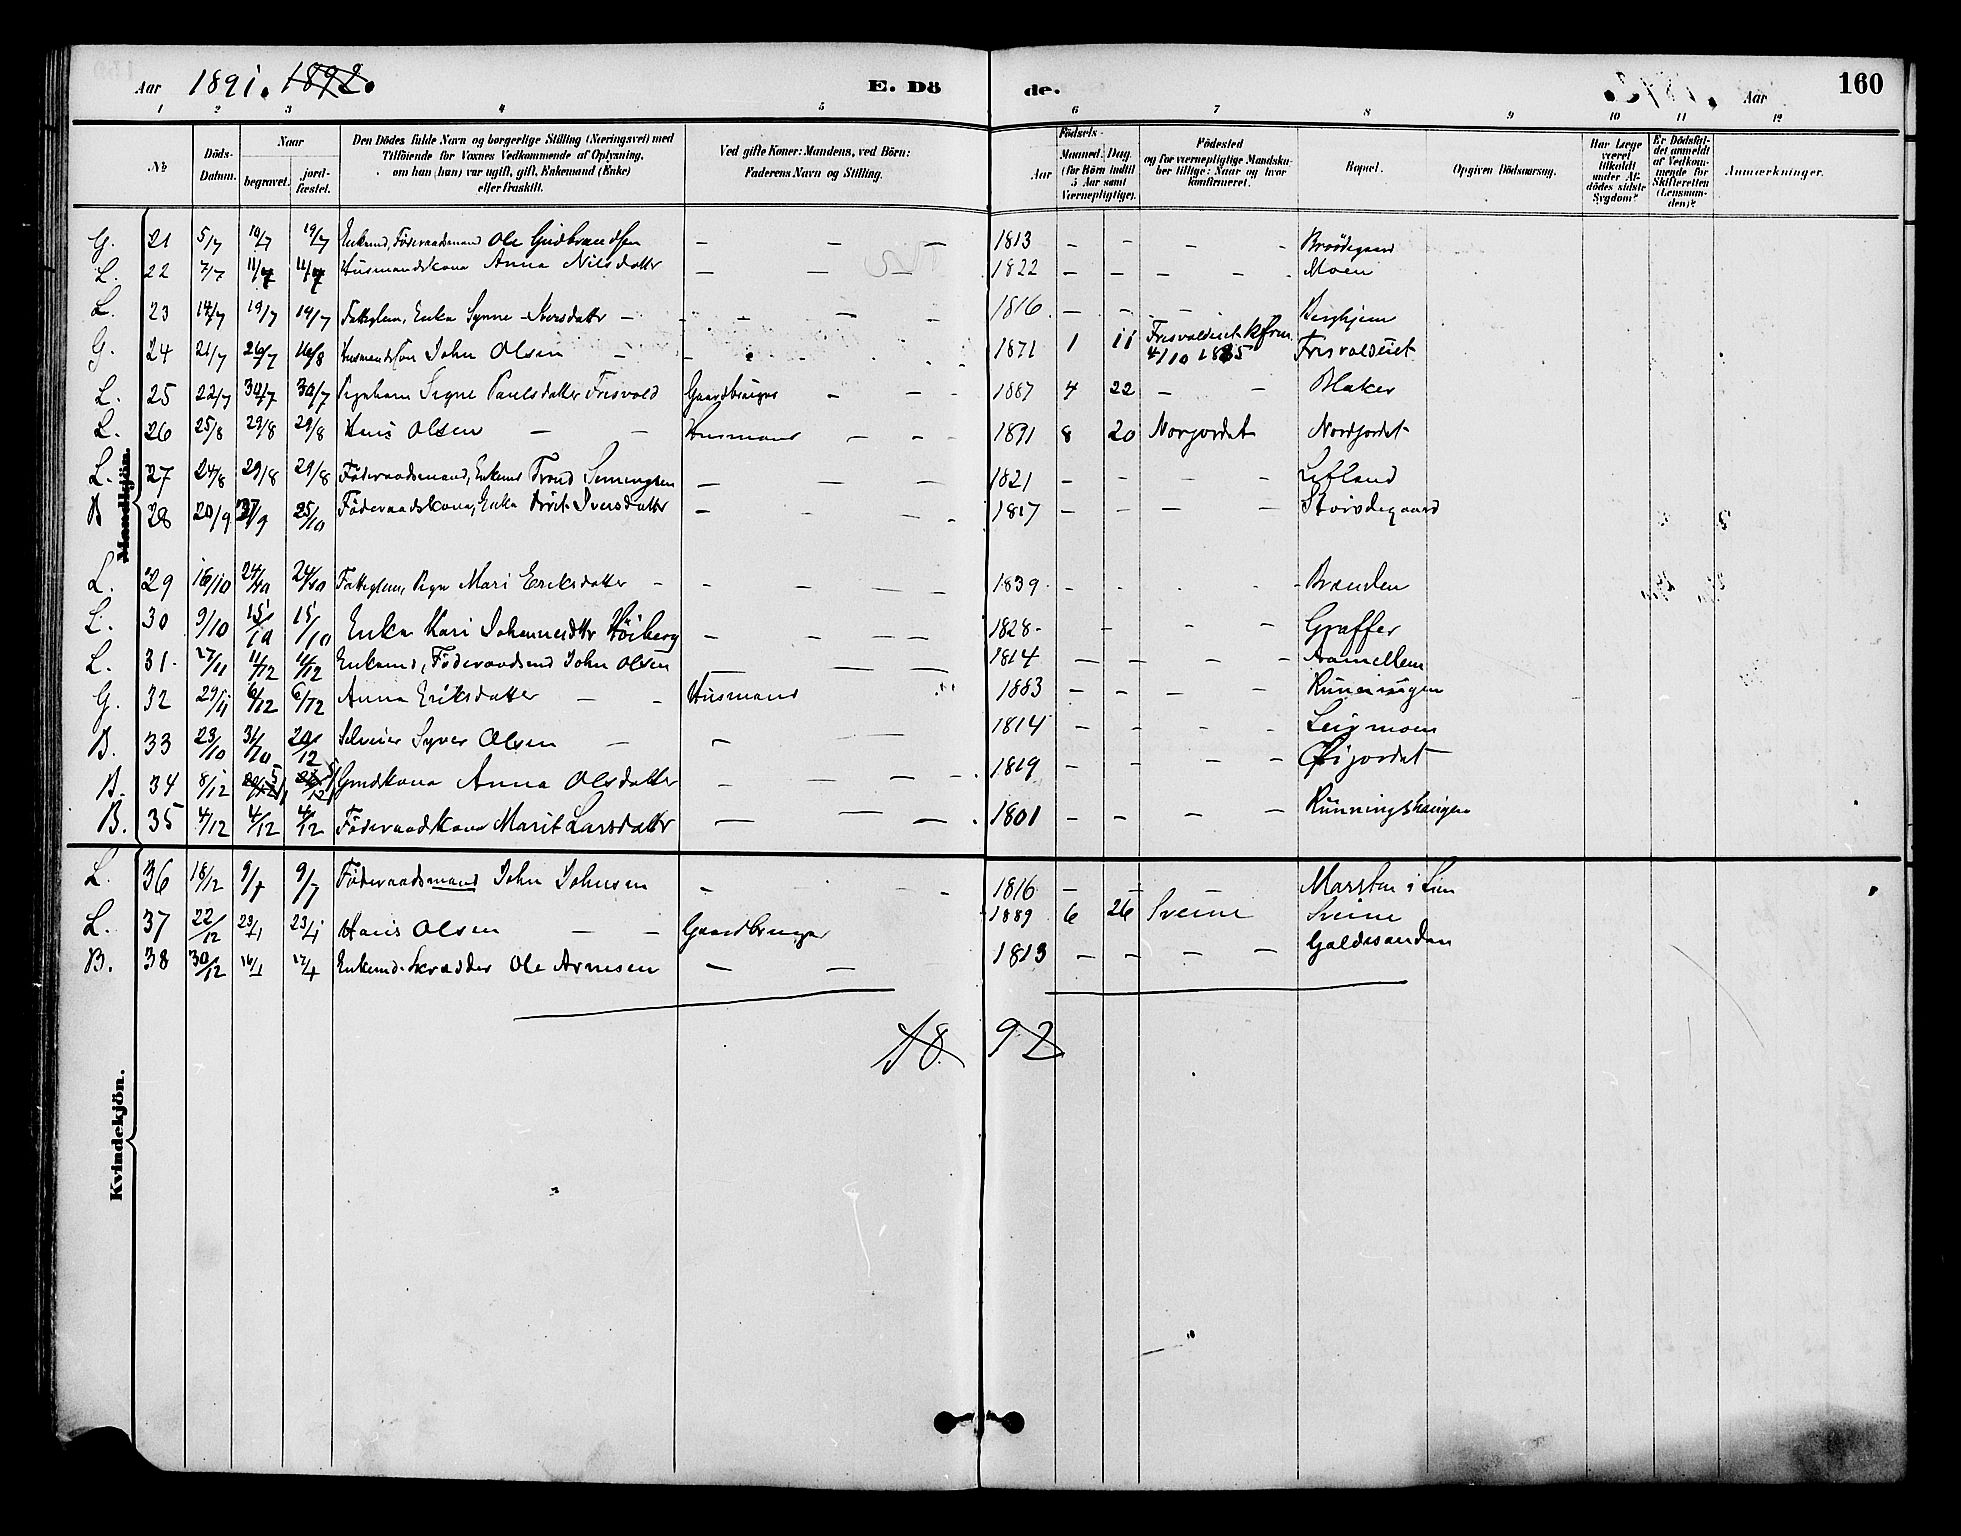 Aar 1891. 1892. E. Dö de. Aar 160
1 2 3 4 5 6 7 8 9 10 11 12
No. Döds-Datum. Naar begravet. jord-fæstet. Den Dödes fulde Navn og borgerlige Stilling (Næringsvei) med Tilföiende for Voxnes Vedkommende af Oplysning, om han (hun) var ugift, gift, Enkemand (Enke) eller fraskilt. Ved gifte Koner: Mandens, ved Börn: Faderens Navn og Stilling. Födsels- Aar Maaned. Dag. (for Börn indtil 5 Aar samt Værnepligtige). Födested og for værnepligtige Mandskaber tillige: Naar og hvor konfirmeret. Bopæl. Opgiven Dödsaarsag. Har Læge været tilkaldt under Afdödes sidste Sygdom? Er Dödsfaldet anmeldt af Vedkommende for Skifteretten (Lensmanden)? Anmærkninger.
Mandkjön.
G. 21 5/7 19/7 19/7 Enkemd, Föderaadsmand Ole Gudbrandsen — — — 1813 — — — — Bröddegaard
L. 22 7/7 11/7 11/7 Husmandskone Anna Nilsdatter — — — 1822 — — — — Moen
L. 23 14/7 19/7 19/7 Fattiglem, Enke Synne Iversdatter — — — 1816 — — — Berghjem
G. 24 21/7 26/7 16/8 Husmandssön John Olsen — 1871 1 11 Frisvoldseiet kfrm. 4/10 1885 Frisvoldseiet
L. 25 22/7 30/7 30/7 Pigebarn Signe Paulsdatter Frisvold Gaardbruger — — 1887 4 22 — — Blaker
L. 26 25/8 29/8 29/8 Hans Olsen — — Husmand — — 1891 8 20 Norjordet Nordjordet
L. 27 24/8 29/8 29/8 Föderaadsmand, Enkemd Trond Semmingsen — — — 1821 — — — — Löfland
B 28 20/9 27/9 25/10 Föderaadskone, Enke Brit Iversdatter — — — 1817 — — — — Storvdegaard
L. 29 16/10 24/10 24/10 Fattiglem, Pige Mari Eriksdatter — — — — 1839 — — — — Brenden
L. 30 9/10 15/10 15/10 Enke Kari Johannesdtr Höiberg — — — — 1828 — — — Graffer
L. 31 27/11 11/12 11/12 Enkemd, Föderaadsmd John Olsen — — — 1814 — — — —
G. 32 29/11 6/12 6/12 Anna Eriksdatter — — Husmand 1883 — — — — Runningen
B. 33 23/10 31/10 20/12 Selveier Syver Olsen — — — 1814 — — — — Leirmoen
B. 34 8/12 Grmdkone Anna Olsdatter — — — 1819 — — — — Öijordet
B. 35 4/12 4/12 4/12 Föderaadskone Marit Larsdatter — — — 1801 — — — — Runningshaugen
L. 36 18/12 9/7 9/7 Föderaadsmand John Johnsen — — 1816 — — — Marstun i Lien
L. 37 22/12 23/1 23/1 Hans Olsen — — Gaardbruger 1889 6 26 Sveine Sveine
B. 38 30/12 16/1 17/1 Enkemd. Skrædder Ole Arnesen — — 1813 — — — — Galdesanden
1892
Kvindekjön.